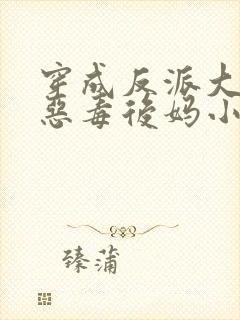 穿成反派大
恶毒後妈小
臻蒲